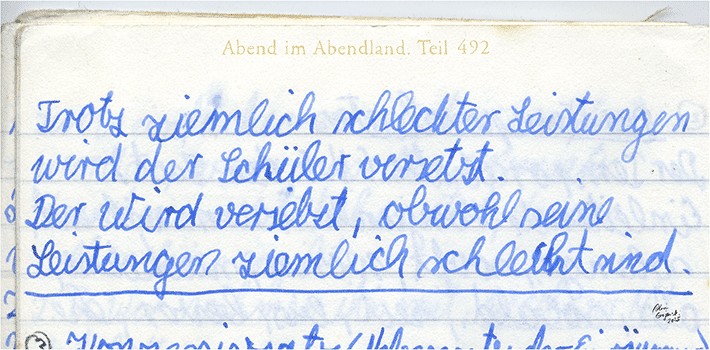 Abend im Abendland. Teil 492
Trotz ziemlich schleckter Leistungen
wird der Schüler versetzt.
Der wird versetzt, obwohl seine
Leistungen ziemlich schlecht sind.